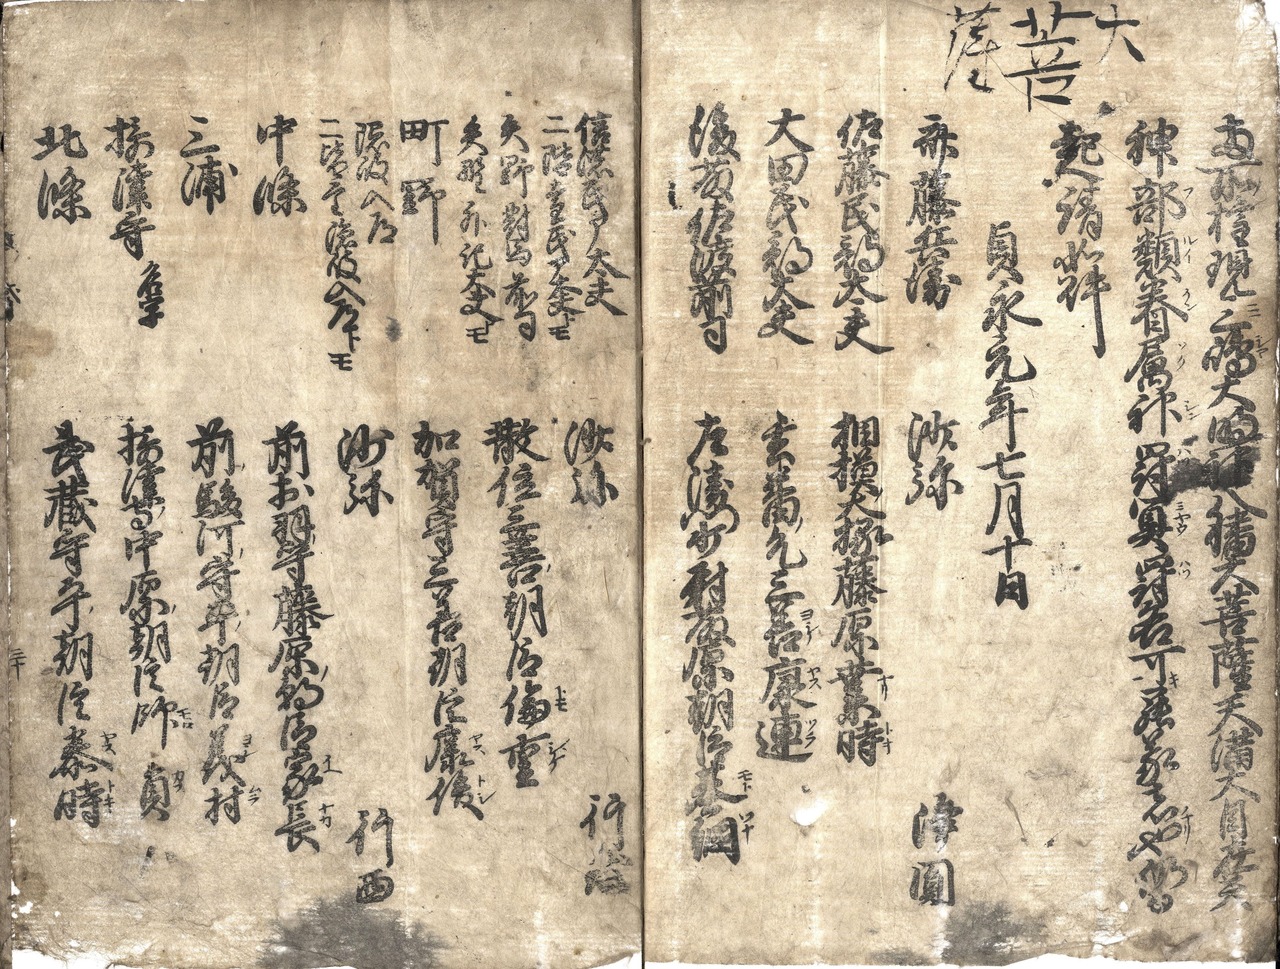 大
菩
薩
両所権現三嶋大明神八幡大菩薩天満大自在天
神部類眷属神罰冥罰各可罷蒙者也仍
起請如件
貞永元年七月十日
斎藤兵衛 沙弥 浄圓
佐藤民部大夫 相模大掾藤原業時
大田民部大夫 玄蕃允三善康連
後藤佐渡前司 左衛門少尉藤原朝臣基綱
信濃民部大夫 沙弥 行
二階堂民部大夫トモ
矢野對馬前司 散位三善朝臣倫重
矢野外記大夫トモ
町野 加賀守三善朝臣康俊
隠岐入道 沙弥 行西
二階堂隠岐入道トモ
中條 前出羽守藤原朝臣家長
三浦 前駿河守平朝臣義村
摂津守 摂津守中原朝臣師貞
北條 武蔵守平朝臣泰時